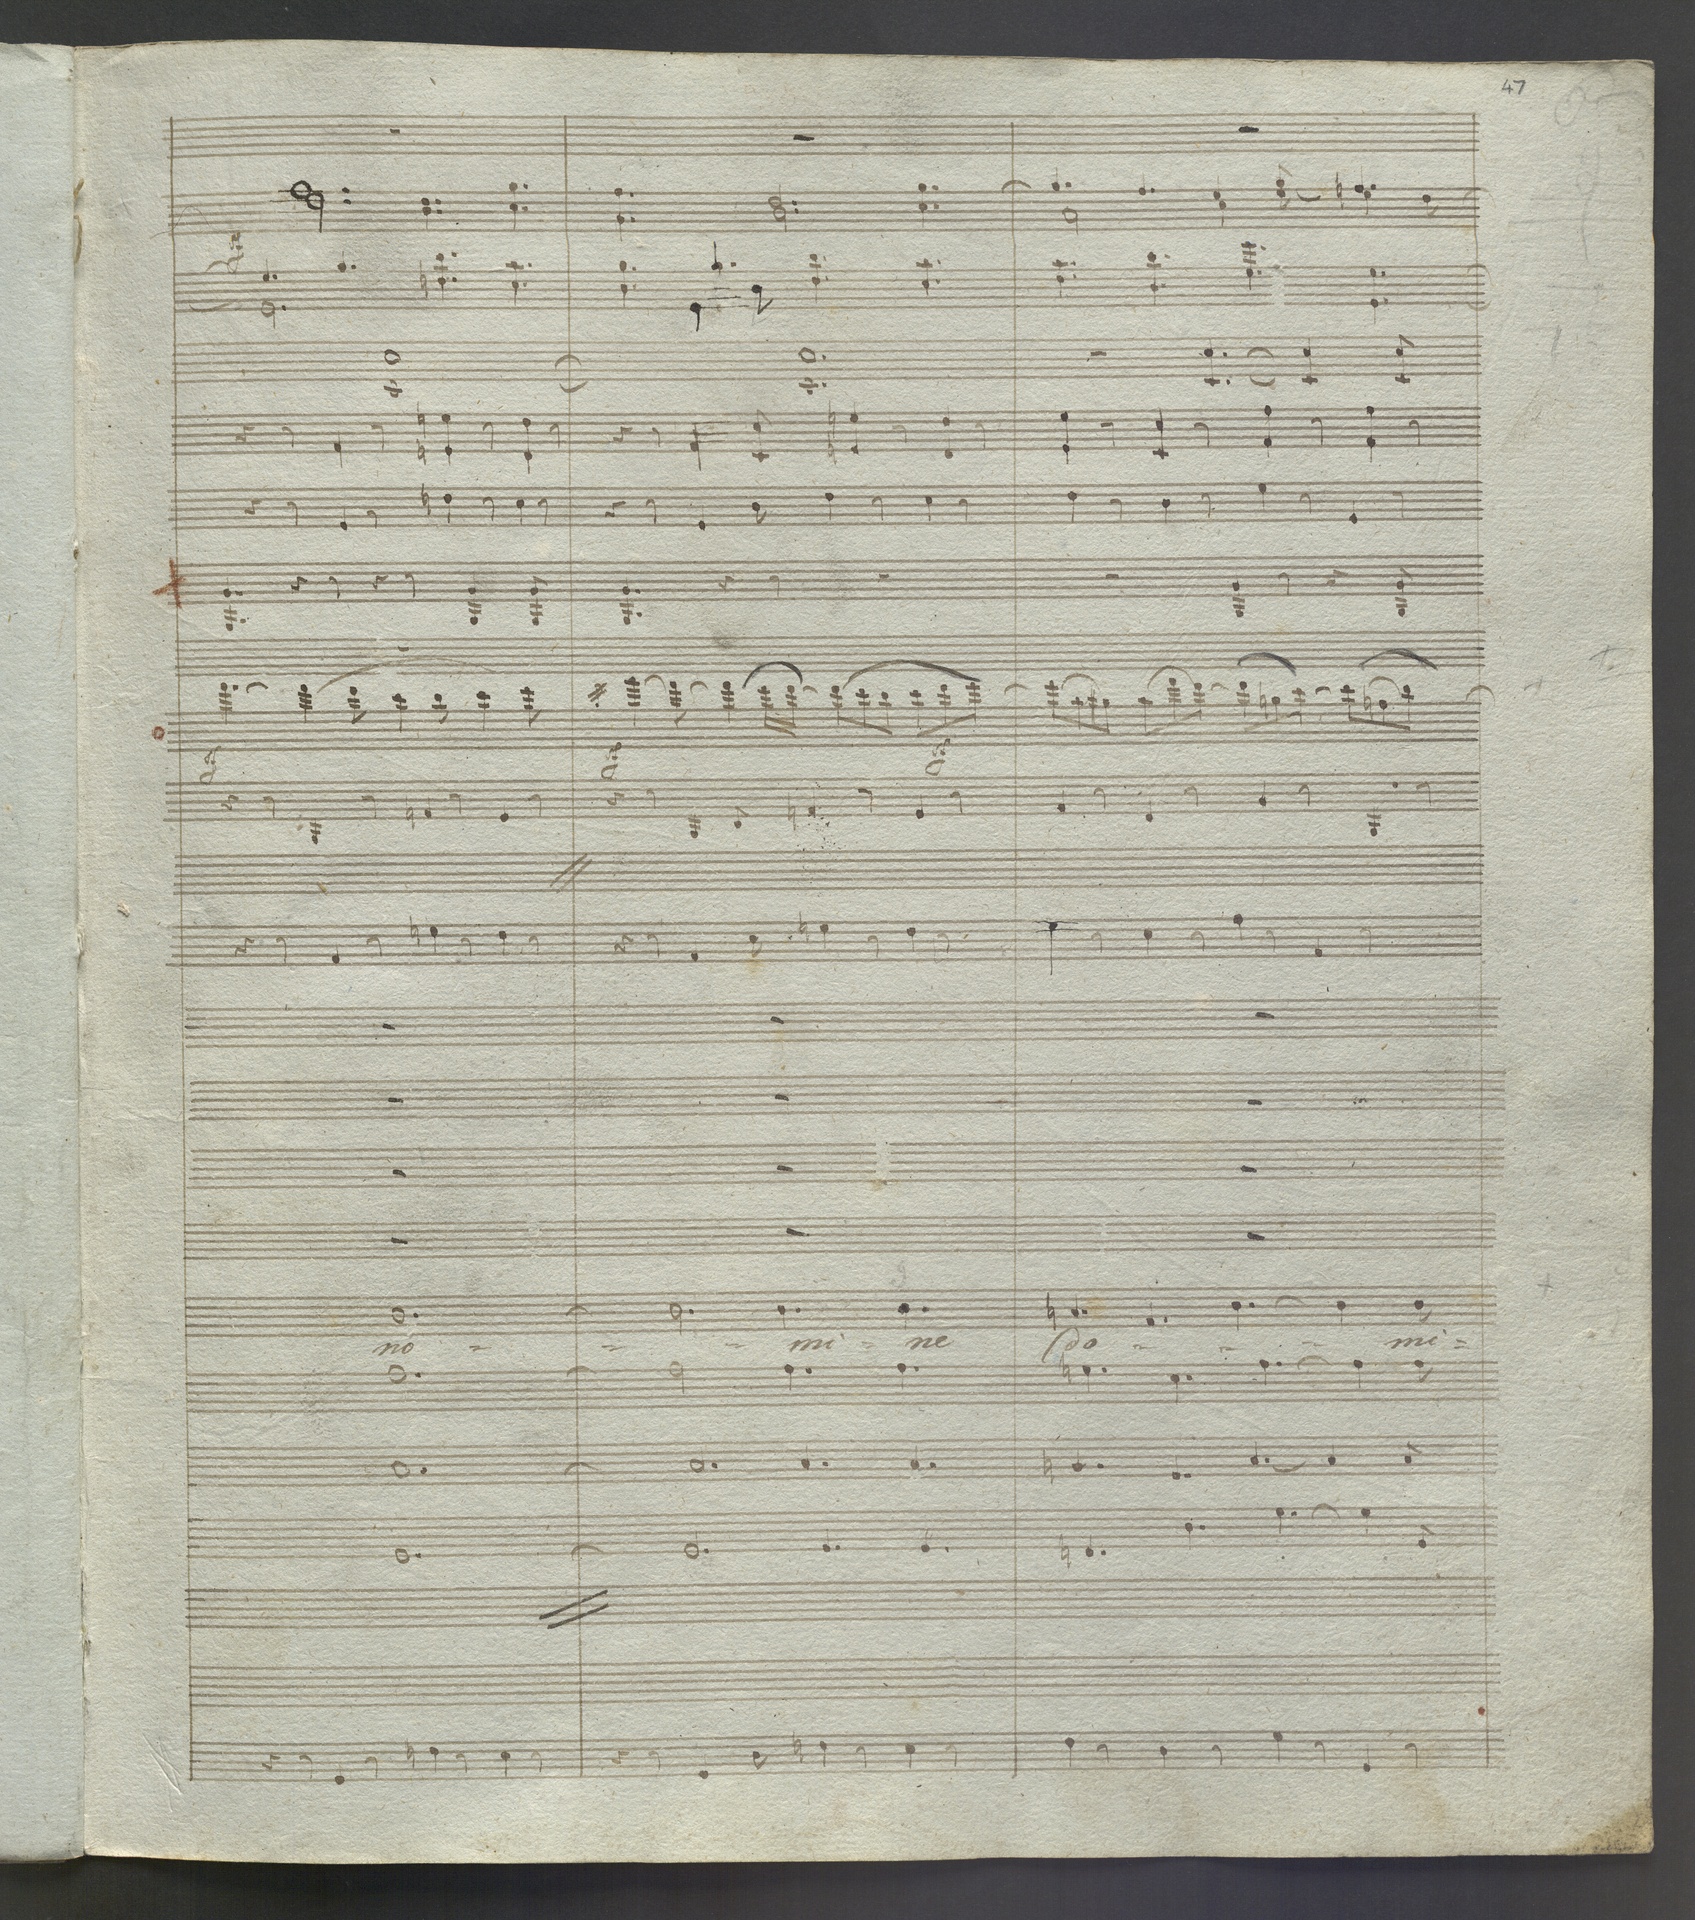 47
no - - - mi - ne Do - - - mi =